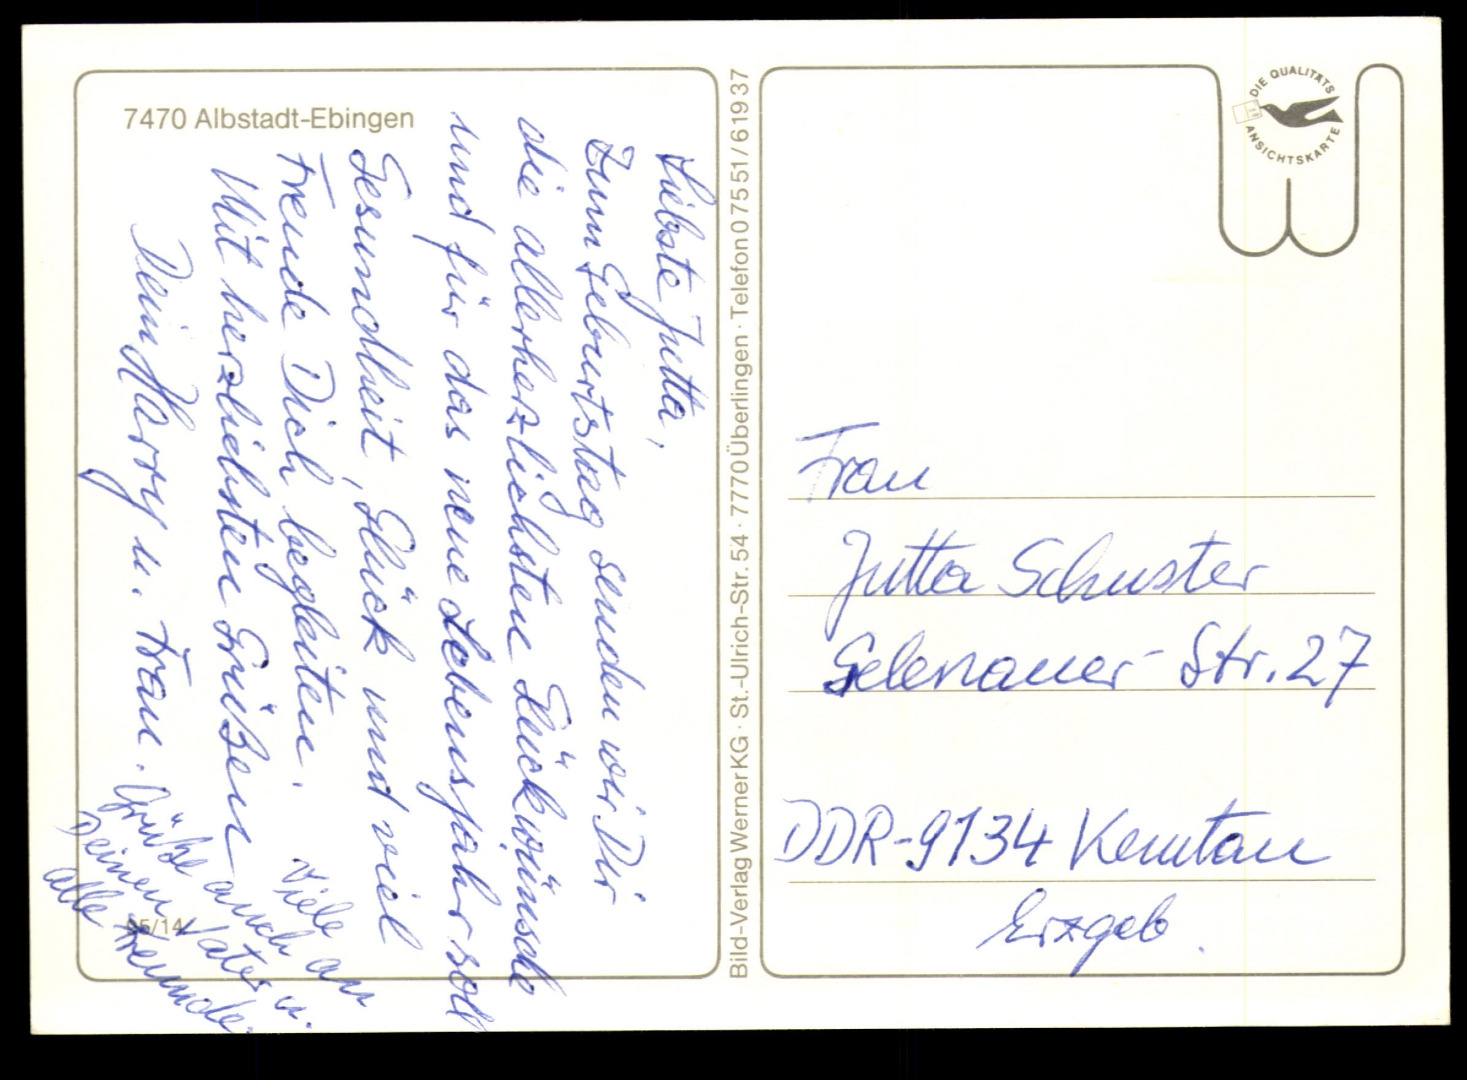 7470 Albstadt-Ebingen
Liebste Jutta,
Zum Geburtstag senden wir Dir
die allerherzlichsten Glückwünsche
und für das neue Lebensjahr soll
Gesundheit, Glück und viel
Freude Dich begleiten.
Mit herzlichsten Grüßen
Dein Harry u. Frau.
Viele
Grüße auch an
Deinen Vater u.
alle Freunde.
05/14
Bild-Verlag Werner KG · St.-Ulrich-Str. 54 · 7770 Überlingen · Telefon 0 75 51 / 6 19 37
DIE QUALITÄTS
ANSICHTSKARTE
Frau
Jutta Schuster
Gelenauer Str. 27
DDR-9134 Kemtau
Erzgeb.